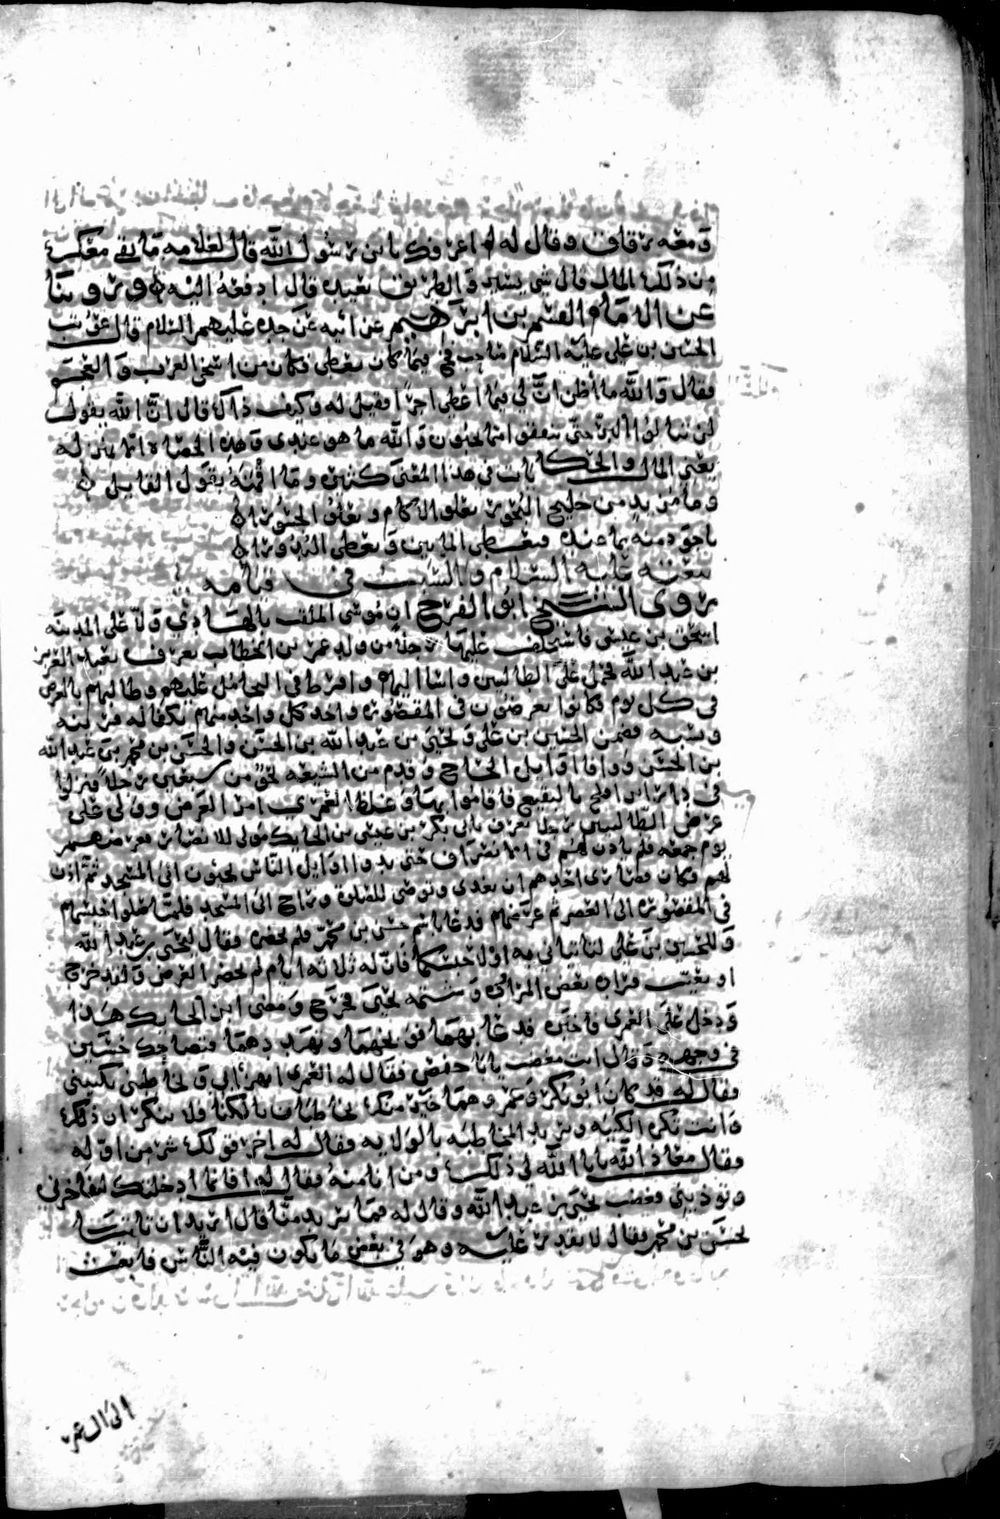 ومعه زقاق وقال له اعزوك يا بن رسول الله قال لغلامه ما بقي معك
من ذلك المال قال شي يسير والطريق بعيد قال ادفعه اليه وروينا
عن الامام القسم بن ابرهيم عن ابيه عن جده عليهم السلام قال عوتب
الحسين بن علي عليه السلام صاحب فخ فيما كان يعطي فكان من اسخى العرب والعجم
فقال والله ما أظن ان لي فيما اعطي اجرا فقيل له وكيف ذاك قال ان الله يقول
لن تنالوا البر حتى تنفقوا مما تحبون والله ما هو عندي وهذه الحصاة الا بمنزلة
يعني المال والحكايات في هذا المعنى كثيرة وما اقمنه بقول القايل
وما مزبد من خليج البحور يعلو الاكام ويعلو الجسورا
باجود منه بما عنده فيعطي المايين ويعطي البدورا
بيعته عليه السلام والسبب في قيامه
روى الشيخ ابو الفرج ان موسى الملقب بالهادي ولا على المدينة
اسحق بن عيسى فاستخلف عليها رجلا من ولد عمر بن الخطاب يعرف بعبد العزيز
بن عبد الله فحمل على الطالبيين واسا اليهم وافرط في التحامل عليهم وطالبهم بالعرض
في كل يوم فكانوا يعرضون في المقصورة واخذ كل واحد منهم بكفالة قرينه
ونسيبه فضمن الحسين بن علي ويحيى بن عبد الله بن الحسن والحسن بن محمد بن عبد الله
بن الحسن ووافا اوايل الحاج وقدم من الشيعة نحو من سبعين رجلا فنزلوا
في دار ابن افلح بالبقيع فاقاموا بها وغلظ العمري امر العرض وولى على
عرض الطالبيين رجلا يعرف بابي بكر بن عيسى بن الحايك مولى للانصار فعرضهم
يوم جمعة فلم ياذن لهم في الانصراف حتى بدو اوايل الناس يجيئون الى المسجد ثم اذن
لهم فكان قصارى احدهم ان يغدي ويتوضى للصلوة وراح الى المسجد فلما صلوا حبسهم
في المقصورة الى العصر ثم عرضهم فدعا باسم حسن بن محمد فلم يحضر فقال ليحيى بن عبد الله
وللحسين بن علي لتاتياني به اولاحبسنكما فان له ثلاثة ايام لم يحضر العرض ولقد خرج
او يغيب فراده بعض المرادة وشتمه يحيى فخرج ومضى ابن الحايك هذا
ودخل على العمري فاخبره فدعا بهما فوبخهما وتهددهما فتضاحك حسين
في وجهه وقال انت مغضب يا با حفص فقال له العمري اتهزا بي وتخاطبني بكنيتي
فقال له قد كان ابو بكر وعمر وهما خير منك يخاطبان بالكنا فلا ينكران ذلك
وانت تكره الكنية وتريد المخاطبة بالولاية فقال له اخر قولك شر من اوله
فقال معاذ الله يابا الله لي ذلك ومن انا منه فقال له افانما ادخلتك لتفاخرني
وتوذيني فغضب يحيى بن عبد الله وقال له فما تريد منا قال اريد ان تاتيا
بحسن بن محمد فقال لا نقدر عليه وهو في بعض ما يكون فيه الناس فابعث
الى ال عمر